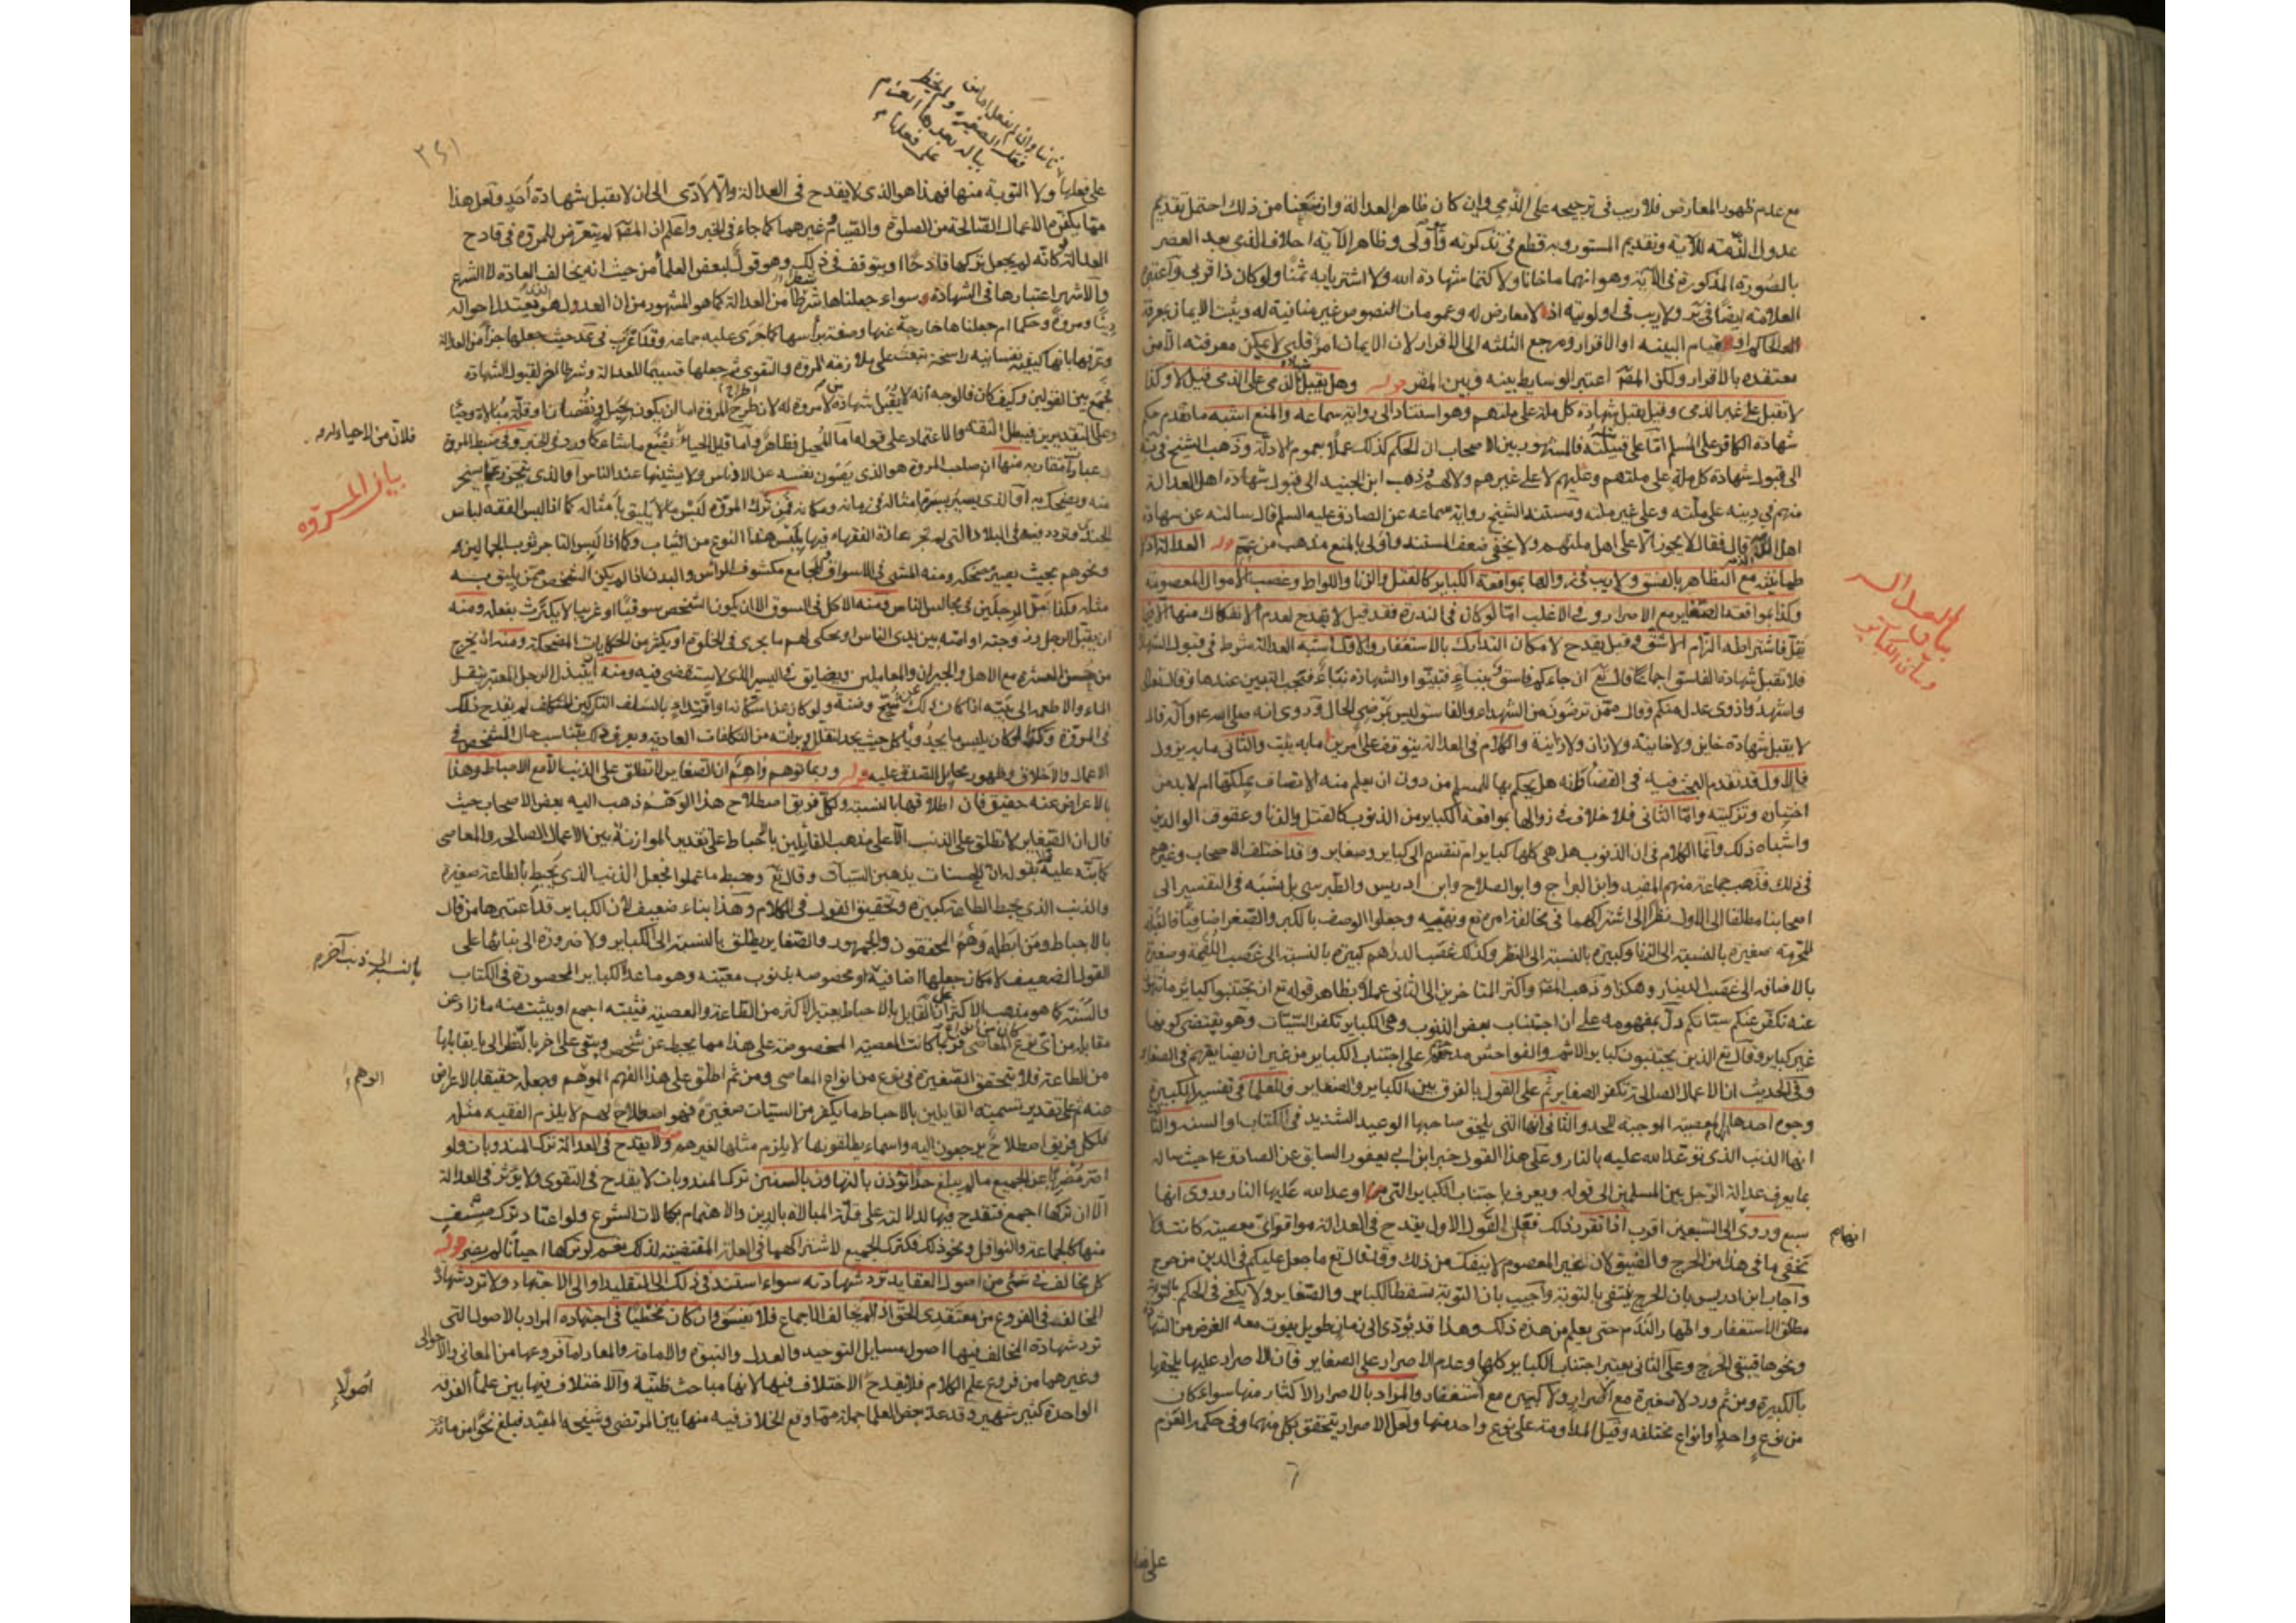 مع عدم ظهور المعارض فلا ريب فى ترجيحه على الذمي وإن كان ظاهر العدالة وان منعنا من ذلك احتمل تقديم
عدول الذمة للآية وتقديم المستور وبه قطع فى تذكرته وأولى وظاهر الآية احلاف الذمى بعد العصر
بالصورة المذكورة فى الآية وهو انهما ما خانا ولا كتما شهادة الله ولا اشتريا به ثمنا ولو كان ذا قربى واعتبره
العلامة ايضا فى ير ولا ريب فى اولويته اذ لا معارض له وعمومات النصوص غير منافية له ويثبت الايمان بمعرفة
الحاكم او قيام البينه او الاقرار ومرجع الثلثه الى الاقرار لان الايمان امر قلبى لا يمكن معرفته الا من
معتقده بالاقرار ولكن المقم اعتبر الوسايط بينه وبين المقر قوله وهل يقبل شهادة الذمى على الذمى قيل لا وكذا
لا تقبل على غير الذمى وقيل يقبل شهادة كل ملة على ملتهم وهو استناد الى رواية سماعه والمنع اشبه ما تقدم حكم
شهادة الكافر على المسلم اما على فالمشهور بين الاصحاب ان الحكم كذلك عملا بعموم الادلة وذهب الشيخ فى يه
الى قبول شهادة كل ملة على ملتهم وعليهم لا على غيرهم ولا لهم وذهب ابن الجنيد الى قبول شهادة اهل العدالة
منهم فى دينه على ملته وعلى غير ملته ومستند الشيخ رواية سماعه عن الصادق عليه السلم قال سالته عن شهادة
اهل الذمة قال فقال لا يجوز الا على اهل ملتهم ولا يخفى ضعف المستند وأولى بالمنع مذهب من عمم قوله العدالة اذ لا
طمانينة مع التظاهر بالفسق ولا ريب فى زوالها بمواقعة الكباير كالقتل والزنا واللواط وغصب الاموال المعصومة
وكذا بمواقعة الصغاير مع الاصرار او فى الاغلب اما لو كان فى الندرة فقد قيل لا يقدح لعدم الانفكاك منها الا فيما
يقل فاشتراطه التزام الاشق وقيل يقدح لامكان التدارك بالاستغفار والاول اشبه العدالة شرط فى قبول الشهادة
فلا تقبل شهادة الفاسق اجماعا قال تع ان جاءكم فاسق بنباء فتبينوا والشهادة نباء فتجب التبين عندها وقال تعالى
واشهدوا ذوى عدل منكم وقال ممن ترضون من الشهداء والفاسق ليس بمرضي الحال وروى انه صلى الله عليه وآله قال
لا يقبل شهادة خاين ولا خاينة ولا زان ولا زانية والكلام فى العدالة يتوقف على امرين ما به يثبت والثانى ما به يزول
فالاول قد تقدم البحث فيه فى القضاء وانه هل يحكم بها للمسلم من دون ان يعلم منه الاتصاف بملكتها ام لا بد من
اختباره وتزكيته واما الثانى فلا خلاف فى زوالها بمواقعة الكباير من الذنوب كالقتل والزنا وعقوق الوالدين
واشباه ذلك وانما الكلام فى ان الذنوب هل هى كلها كباير ام تنقسم الى كباير وصغاير وقد اختلف الاصحاب وغيرهم
فى ذلك فذهب جماعة منهم المفيد وابن البراج وابو الصلاح وابن ادريس والطبرسى بل نسبه فى التفسير الى
اصحابنا مطلقا الى الاول نظرا الى اشتراكهما فى مخالفة امره تع ونهيه وجعلوا الوصف بالكبر والصغر اضافيا فالقبلة
المحرمة صغيرة بالنسبة الى الزنا وكبيرة بالنسبة الى النظر وكذلك غصب الدرهم كبيرة بالنسبة الى غصب اللقمة وصغيرة
بالاضافه الى غصب الدينار وهكذا وذهب المقم واكثر المتاخرين الى الثانى عملا بظاهر قوله تع ان تجتنبوا كباير ما تنهون
عنه نكفر عنكم سيئاتكم دل بمفهومه على ان اجتناب بعض الذنوب وهى الكباير تكفر السيئات وهو يقتضى كونها
غير كباير وقال تع الذين يجتنبون كباير الاثم والفواحش مدحهم على اجتناب الكباير من غير ان يضايقهم فى الصغاير
وفى الحديث ان الاعمال الصالحة تكفر الصغاير ثم على القول بالفرق بين الكباير والصغاير فللعلماء فى تفسير الكبيرة
وجوه احدها المعصية الموجبة للحد والثانى انها التى يلحق صاحبها الوعيد الشديد فى الكتاب او السنه والثالث
انها الذنب الذى توعد الله عليه بالنار وعلى هذا القول خبر ابن ابى يعفور السابق عن الصادق ع حيث ساله
بما يعرف عدالة الرجل بين المسلمين الى قوله ويعرف باجتناب الكباير التى اوعد الله عليها النار وروى انها
سبع وروى الى السبعين اقرب اذا تقرر ذلك فعلى القول الاول يقدح فى العدالة مواقعة اى معصية كانت ولا
يخفى ما فى هذا من الحرج والضيق لان غير المعصوم لا ينفك من ذلك وقد قال تع ما جعل عليكم فى الدين من حرج
واجاب ابن ادريس بان الحرج ينتفى بالتوبة واجيب بان التوبة تسقط الكباير والصغاير ولا يكفى فى الحكم بالتوبة
مطلق الاستغفار واظهار الندم حتى يعلم من هذه ذلك وهذا قد يؤدى الى زمان طويل يفوت معه الغرض من الشهادة
ونحوها فيبقى الحرج وعلى الثانى يعتبر اجتناب الكباير كلها وعدم الاصرار على الصغاير فان الاصرار عليها يلحقها
بالكبيرة ومن ثم ورد لا صغيرة مع الاصرار ولا كبيرة مع استغفار والمراد بالاصرار الاكثار منها سواء كان
من نوع واحد او انواع مختلفه وقيل المداومة على نوع واحد منها ولعل الاصرار يتحقق بكل منهما وفى حكمه العزم
بيان العدالة
وبيان الكباير
انهام
٣٤١
على فعلها ولا التوبة منها فهذا هو الذى لا يقدح فى العدالة والا لادى الى ان لا يقبل شهادة احد ولعل هذا
مما يكفره الاعمال الصالحة من الصلوة والصيام وغيرهما كما جاء فى الخبر واعلم ان المقم لم يتعرض للمروة فى قادح
العدالة وكانه لم يجعل تركها قادحا او يتوقف فى ذلك وهو قول لبعض العلماء من حيث انه يخالف العادة لا الشرع
والاشهر اعتبارها فى الشهادة سواء جعلناها شرطا من العدالة كما هو المشهور من ان العدل هو يعتدل احواله
دينا ومروة وحكما ام جعلناها خارجة عنها وصفة براسها كما جرى عليه جماعة وقد اغرب فى عد حيث جعلها جزاء من العدالة
وعرفها بانها كيفية نفسانيه راسخة تبعث على ملازمة المروة والتقوى ثم جعلها قسيما للعدالة وشرطا اخر لقبول الشهادة
فجمع بين القولين وكيف كان فالوجه انه لا يقبل شهادة من لا مروة له لان طرح المروة اما ان يكون لخبل ونقصان او قلة مبالاة وحياء
وعلى التقديرين فيبطل الثقه والاعتماد على قوله اما الخبل فظاهر واما قليل الحياء يصنع ما شاء كما ورد فى الخبر وفى ضبط المروة
عبارات متقاربه منها ان صاحب المروة هو الذى يصون نفسه عن الادناس ولا يشينها عند الناس او الذى يتحرز عما يسخر
منه ويضحك به او الذى يسير بسيرة امثاله فى زمانه ومكانه فمن ترك المروة لبس ما لا يليق بامثاله كما اذا لبس الفقيه لباس
الجندى وتردد فيه فى البلاد التى لم تجر عادة الفقهاء فيها بلبس هذا النوع من الثياب وكما اذا لبس التاجر ثوب الحمالين
ونحوهم بحيث يصير ضحكه ومنه المشى فى الاسواق والمجامع مكشوف الراس والبدن اذا لم يكن الشخص ممن يليق به
مثله وكذا مد الرجلين فى مجالس الناس ومنه الاكل فى السوق الا ان يكون الشخص سوقيا او غريبا لا يكترث بفعله ومنه
ان يقبل الرجل زوجته او امته بين يدى الناس او يحكى لهم ما يجرى فى الخلوة او يكثر من الحكايات المضحكة ومنه ان يخرج
من حسن العشرة مع الاهل والجيران والمعاملين ويضايق فى اليسير الذى لا يستقصى فيه ومنه ان يتبذل الرجل المعتبر بنقل
الماء والاطعمه الى بيته اذا كان ذلك عن شح وضنة ولو كان عن استكانة او اقتداء بالسلف التاركين للتكلف لم يقدح ذلك
فى المروة وكذا لو كان يلبس ما يجد ويأكل حيث يجد لتقلله وبراءته من التكلفات العاديه ويعرف ذلك بتناسب حال الشخص فى
الاعمال والاخلاق وظهور مخايل الصدق عليه قوله وربما توهم واهم ان الصغاير لا تطلق على الذنب الا مع الاحباط وهذا
بالاعراض عنه حقيق فان اطلاقها بالنسبة ولكل فريق اصطلاح هذا الوهم ذهب اليه بعض الاصحاب حيث
قال ان الصغاير لا تطلق على الذنب الا على مذهب القائلين بالاحباط على تقدير الموازنة بين الاعمال الصالحة والمعاصى
كما نبه عليه بقوله ان الحسنات يذهبن السيئات وقال تع وحبط ما عملوا فجعل الذنب الذى يحبط بالطاعة صغيرة
والذنب الذى يحبط الطاعة كبيرة وتحقيق القول فى الكلام وهذا بناء ضعيف لان الكباير قد اعتبرها من قال
بالاحباط ومن ابطله وهم المحققون والجمهور والصغاير يطلق بالنسبة الى الكباير ولا ضرورة الى بنائها على
القول الضعيف لامكان جعلها اضافية او مخصوصه بذنوب معينه وهو ما عدا الكباير المحصورة فى الكتاب
والسنة كما هو مذهب الاكثر القايل بالاحباط يعتبر الاكثر من الطاعة والمعصية فيثبته اجمع او يثبت منه ما زاد عن
مقابله من اى نوع كان من انواع المعاصى فربما كانت المعصية المخصوصة على هذا مما يحبط عن شخص ويبقى على اخر بالنظر الى ما يقابلها
من الطاعة فلا يتحقق الصغيرة فى نوع من انواع المعاصى ومن ثم اطلق على هذا الفهم الوهم وجعله حقيقا بالاعراض
عنه ثم على تقدير تسمية القايلين بالاحباط ما يكفر من السيئات صغيرة فهو اصطلاح لهم لا يلزم الفقيه مثله
فلكل فريق اصطلاح يرجعون اليه واسماء يطلقونها لا يلزم مثلها لغيرهم ولا يقدح فى العدالة ترك المندوبات ولو
اصر مضربا عن الجميع ما لم يبلغ حدا تؤذن بالتهاون بالسنن ترك المندوبات لا يقدح فى التقوى ولا يؤثر فى العدالة
الا ان تركها اجمع فتقدح فيها لدلالته على قلة المبالاة بالدين والاهتمام بكمالات الشرع ولو اعتاد ترك صنف
منها كالجماعة والنوافل ونحو ذلك فكترك الجميع لاشتراكهما فى العلة المقتضية لذلك نعم لو تركها احيانا لم يضر قوله
كل مخالف فى شئ من اصول العقايد ترد شهادته سواء استند فى ذلك الى التقليد او الى الاجتهاد ولا ترد شهادة
المخالف فى الفروع من معتقدى الحق اذا لم يخالف الاجماع فلا يفسق وان كان مخطئا فى اجتهاده المراد بالاصول التى
ترد شهادة المخالف فيها اصول مسايل التوحيد والعدل والنبوة والامامة والمعاد اما فروعها من المعانى والاحوال
وغيرهما من فروع علم الكلام فلا يقدح الاختلاف فيها لانها مباحث ظنية والاختلاف فيها بين علماء الفرقة
الواحدة كثير شهير وقد عد بعض العلماء جملة مما وقع الخلاف فيه منها بين المرتضى وشيخه المفيد فبلغ نحوا من مائة
فلان من لا حياء له
بيان المروه
بالنسبة الى ذنب آخر
الوهم
اصولا